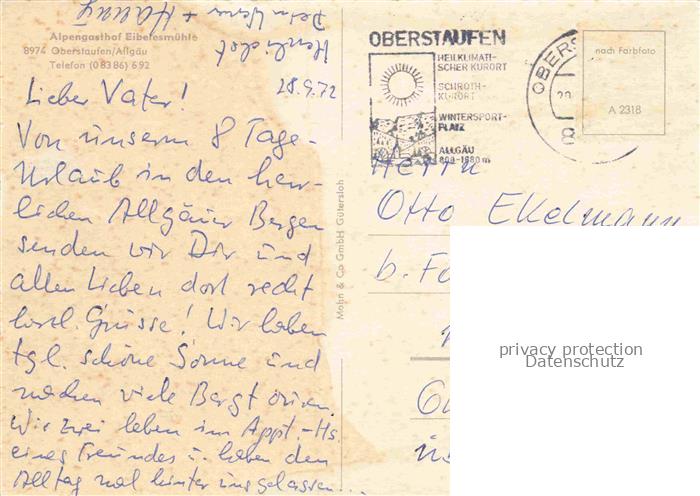 Alpengasthof Eibelesmühle
8974 Oberstaufen/Allgäu
Telefon (08386) 692
28.9.72
Lieber Vater!
Von unserm 8 Tage-
Urlaub in den herr-
lichen Allgäuer Bergen
senden wir Dir und
allen Lieben dort recht
herzl. Grüsse! Wir haben
tgl. schöne Sonne und
machen viele Bergtouren.
Wir zwei leben im Appt.-Hs.
eines Freundes u. haben den
Alltag mal hinter uns gelassen...
Herzlichst
Mohn & Co GmbH Gütersloh
OBERSTAUFEN
HEILKLIMATI-
SCHER KURORT
SCHROTH-
KURORT
WINTERSPORT-
PLATZ
ALLGÄU
800-1680 m
OBERS
nach Farbfoto
A 2318
Herrn
Otto Ekelmann
b.
privacy protection
Datenschutz